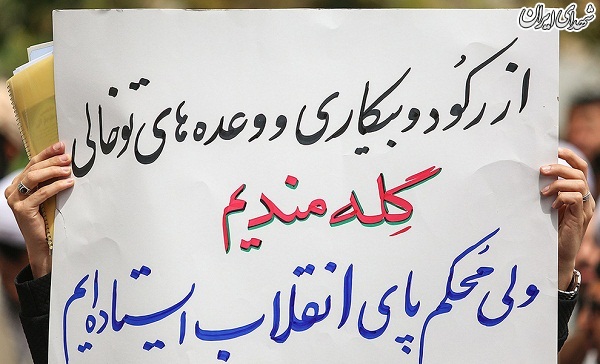 شهدای ایران
از رکُود و بیکاری و وعده های توخالی
گِله مندیم
ولی مُحکم پای انقلاب ایستاده ایم